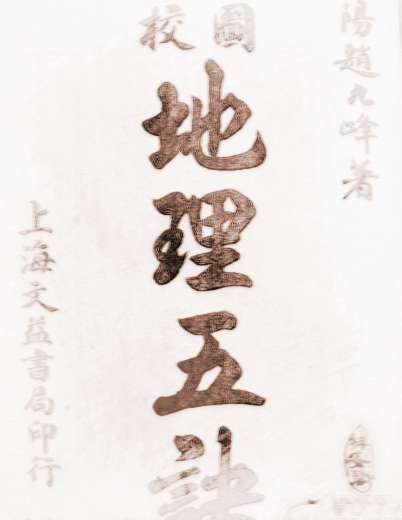 陽趙九峰著
圖校
地理五訣
上海文益書局印行